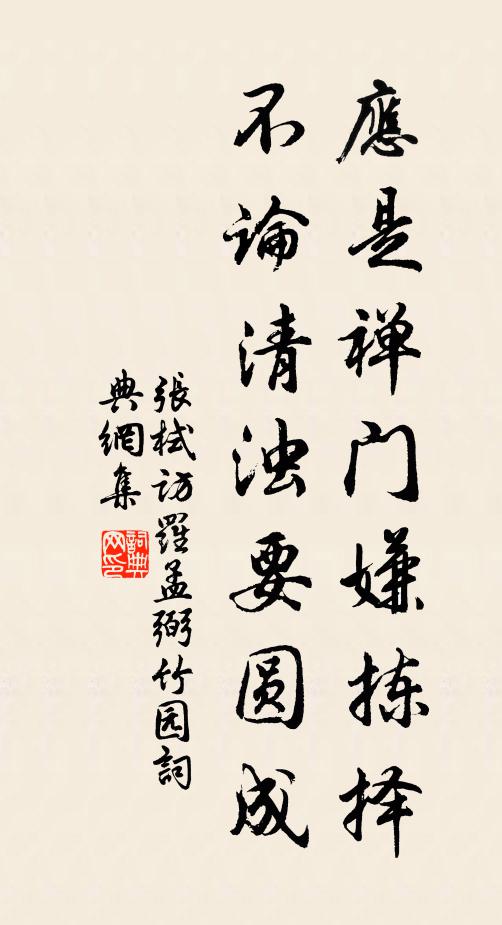 應是禅门嫌拣择
不論清浊要圆成
張栻訪羅孟弼竹园詞
典網集
詞典
网印